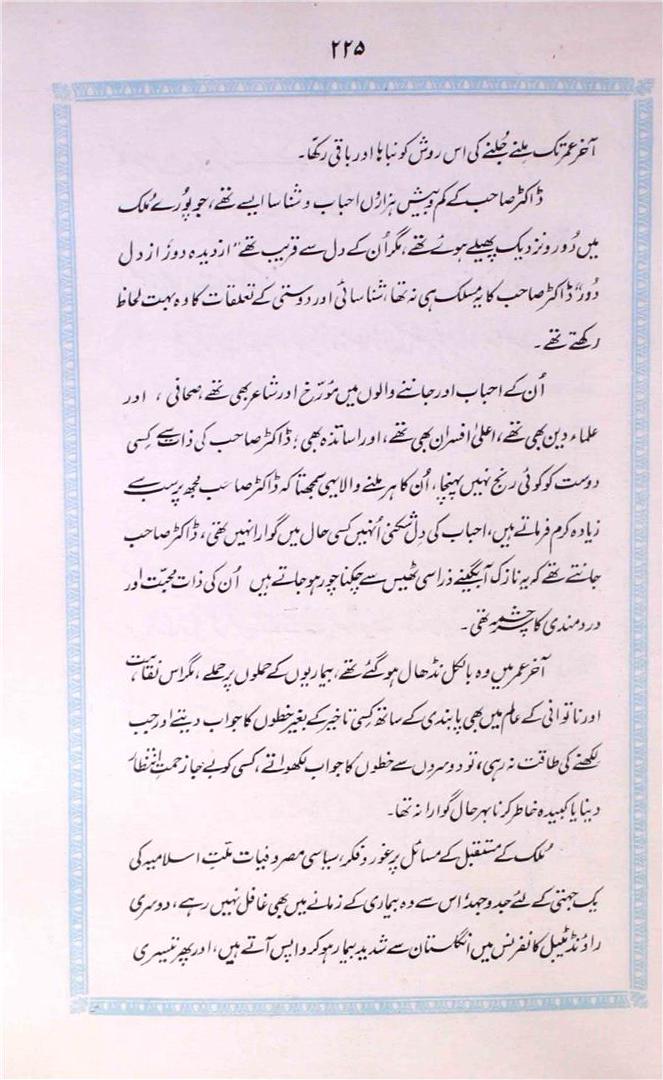 ۲۲۵
آخر عمر تک ملنے جُلنے کی اس روش کو نباہا اور باقی رکھّا۔
ڈاکٹر صاحب کے کم و بیش ہزاروں احباب و شناسا ایسے تھے، جو پُورے مُلک
میں دُور و نزدیک پھیلے ہوئے تھے، مگر اُن کے دل سے قریب تھے "از دیدہ دور از دل
دُور" ڈاکٹر صاحب کا یہ مسلک ہی نہ تھا، شناسائی اور دوستی کے تعلقات کا وہ بہت لحاظ
رکھتے تھے۔
اُن کے احباب اور جاننے والوں میں مُورّخ اور شاعر بھی تھے، صحافی، اور
علماء دین بھی تھے، اعلیٰ افسران بھی تھے، اور اساتذہ بھی؛ ڈاکٹر صاحب کی ذات سے کِسی
دوست کو کوئی رنج نہیں پہنچا، اُن کا ہر ملنے والا یہی سمجھتا کہ ڈاکٹر صاحب مجھ پر سب سے
زیادہ کرم فرماتے ہیں، احباب کی دِل شکنی اُنہیں کسی حال میں گوارا نہیں تھی، ڈاکٹر صاحب
جانتے تھے کہ یہ نازک آبگینے ذرا سی ٹھیس سے چکنا چور ہو جاتے ہیں اُن کی ذات محبّت اور
دردمندی کا سرچشمہ تھی۔
آخر عمر میں وہ بالکل نڈھال ہو گئے تھے، بیماریوں کے حملوں پر حملے، مگر اس نقاہت
اور ناتوانی کے عالم میں بھی پابندی کے ساتھ کِسی تاخیر کے بغیر خطوں کا جواب دیتے اور جب
لِکھنے کی طاقت نہ رہی، تو دوسروں سے خطوں کا جواب لکھواتے، کسی کو بے جا زحمتِ انتظار
دینا یا کبیدہ خاطر کرنا بہر حال گوارا نہ تھا۔
مُلک کے مستقبل کے مسائل پر غور و فکر، سیاسی مصروفیات ملّتِ اسلامیہ کی
یک جہتی کے لئے جدوجہد! اس سے وہ بیماری کے زمانے میں بھی غافل نہیں رہے، دوسری
راؤنڈ ٹیبل کانفرنس میں انگلستان سے شدید بیمار ہو کر واپس آتے ہیں، اور پھر تیسری